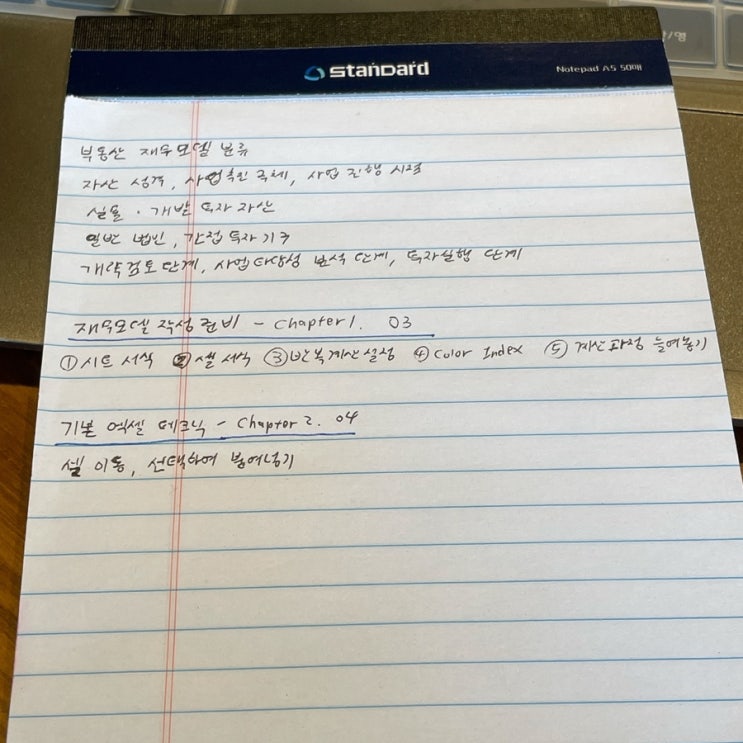 standard
Notepad A5 50매
부동산 재무모델 분류
자산 성격, 사업추진 주체, 사업 진행 시점
실물 · 개발 투자 자산
일반 법인, 간접 투자 기구
개략검토 단계, 사업타당성 분석 단계, 투자실행 단계
재무모델 작성 준비 - Chapter 1. 03
① 시트 서식 ② 셀 서식 ③ 반복계산 설정 ④ Color Index ⑤ 계산과정 늘여놓기
기본 엑셀 테크닉 - Chapter 2. 04
셀 이동, 선택하여 붙여넣기